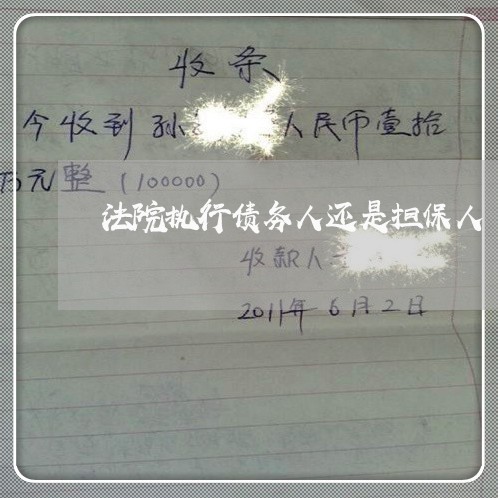 收条
今收到孙 人民币壹拾
万元整(100000)
法院执行债务人还是担保人
收款人
2011年6月2日